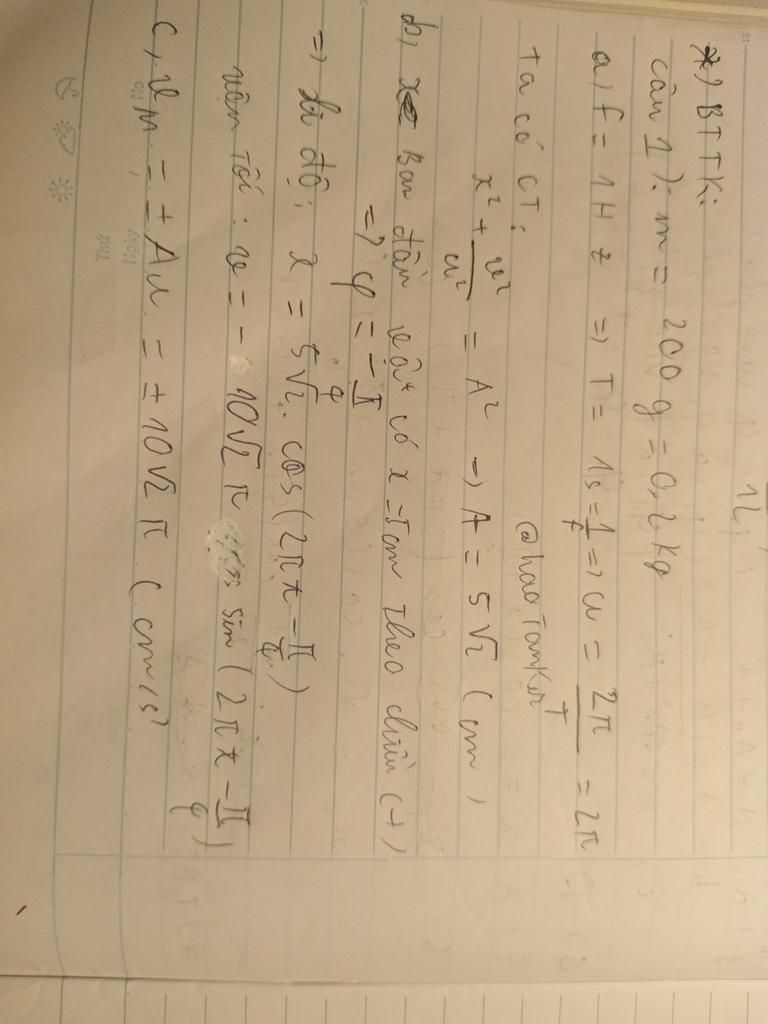 *) BTTK:
câu 1): m = 200 g = 0,2 kg
a, f = 1 Hz => T = 1s = 1/f => ω = 2π/ = 2π
ta có CT: @haoTanker
x² + v²/ω² = A² => A = 5√2 (cm)
b, Ban đầu vật có x = 5cm theo chiều (+)
=> φ = -π/4
=> li độ: x = 5√2 . cos(2πt - π/4)
vận tốc: v = - 10√2 π sin(2πt - π/4)
c, vm = ± Aω = ± 10√2 π (cm/s)